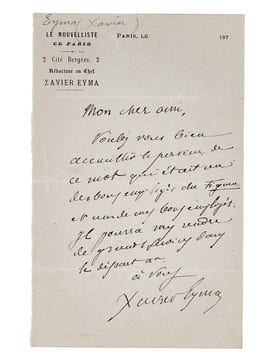 Eyma (Xavier)
LE NOUVELLISTE
DE PARIS
PARIS, LE 187
2 Cité Bergère, 2
Rédacteur en Chef
XAVIER EYMA
Mon cher ami,
Voulez vous bien
accueillir le porteur de
ce mot qui était un
des bons employés du Figaro
et un de mes bons employés.
Il pourra vous rendre
de grands services dans
le départ
à vous
Xavier Eyma